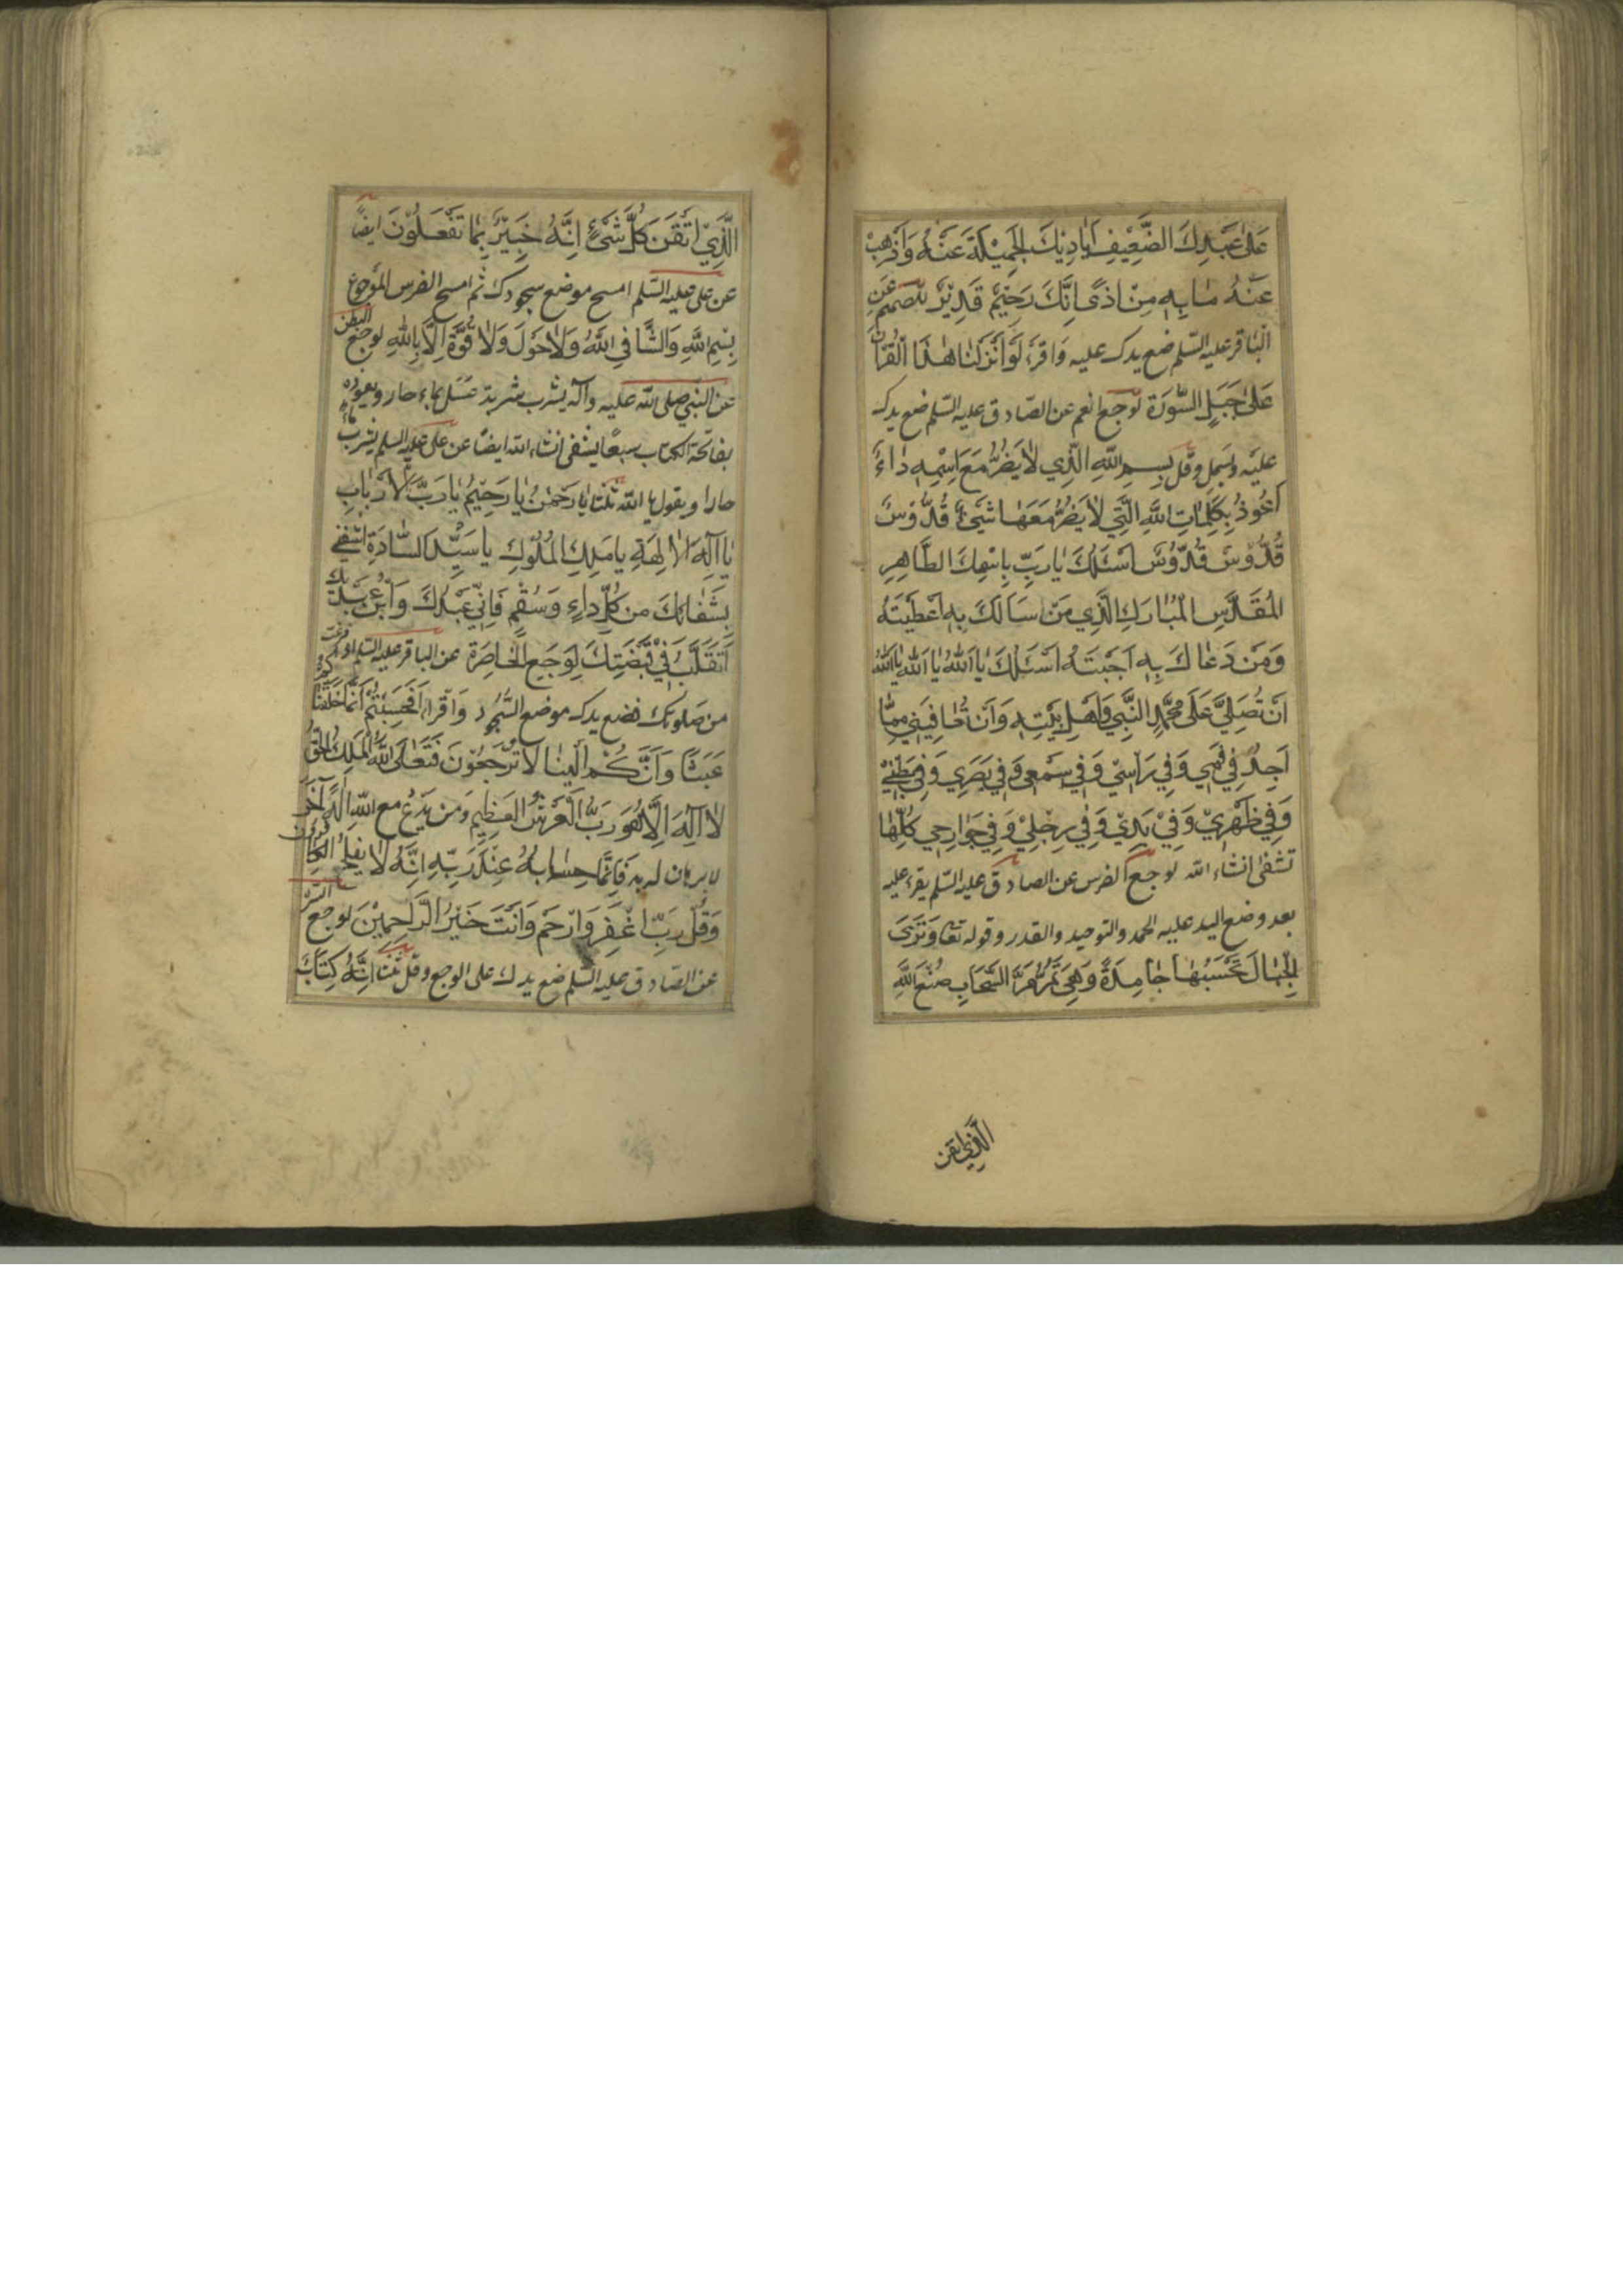 عَلٰى عَبْدِكَ الضَّعِيْفِ اَيَادِيْكَ الْجَمِيْلَةَ عَنْهُ وَاَذْهِبْ
عَنْهُ مَا بِهِ مِنْ اَذًى اِنَّكَ رَحِيْمٌ قَدِيْرٌ للصمم عن
الباقر عليه السّلم ضع يدك عليه واقرء لَوْ اَنْزَلْنَا هٰذَا الْقُرْاٰنَ
عَلٰى جَبَلٍ السّورة لوجع الفم عن الصّادق عليه السّلم ضع يدك
عليه وبسمل وقل بِسْمِ اللّٰهِ الَّذِي لَا يَضُرُّ مَعَ اسْمِهِ دَاءٌ
اَعُوذُ بِكَلِمَاتِ اللّٰهِ الَّتِي لَا يَضُرُّ مَعَهَا شَيْءٌ قُدُّوْسٌ
قُدُّوْسٌ قُدُّوْسٌ اَسْئَلُكَ يَا رَبِّ بِاسْمِكَ الطَّاهِرِ
الْمُقَدَّسِ الْمُبَارَكِ الَّذِي مَنْ سَاَلَكَ بِهِ اَعْطَيْتَهُ
وَمَنْ دَعَاكَ بِهِ اَجَبْتَهُ اَسْئَلُكَ يَا اَللّٰهُ يَا اَللّٰهُ يَا اَللّٰهُ
اَنْ تُصَلِّيَ عَلٰى مُحَمَّدٍ النَّبِيِّ وَاَهْلِ بَيْتِهِ وَاَنْ تُعَافِيَنِي مِمَّا
اَجِدُ فِي فَمِي وَفِي رَاْسِي وَفِي سَمْعِي وَفِي بَصَرِي وَفِي بَطْنِيْ
وَفِي ظَهْرِيْ وَفِيْ يَدِيْ وَفِي رِجْلِيْ وَفِي جَوَارِحِي كُلِّهَا
تشفى انشاء الله لوجع الضرس عن الصادق عليه السّلم يقرء عليه
بعد وضع اليد عليه الحمد والتوحيد والقدر وقوله تعا وَتَرَى
الْجِبَالَ تَحْسَبُهَا جَامِدَةً وَهِيَ تَمُرُّ مَرَّ السَّحَابِ صُنْعَ اللّٰهِ
الَّذِي اتقن
الَّذِيْ اَتْقَنَ كُلَّ شَيْءٍ اِنَّهُ خَبِيْرٌ بِمَا تَفْعَلُوْنَ ايضًا
عن على عليه السّلم امسح موضع سجودك ثم امسح الضرس الموجوع
بِسْمِ اللّٰهِ وَالشَّافِي اللّٰهُ وَلَا حَوْلَ وَلَا قُوَّةَ اِلَّا بِاللّٰهِ لوجع البطن
عن النّبي صلى اللّه عليه وآله يشرب شربة عسل بماء حار ويعوذه
بفاتحة الكتاب سبعًا يشفى انشاء الله ايضًا عن على عليه السلم يشرب ماءً
حارا ويقول يا اللّه ثلثا يَا رَحْمٰنُ يَا رَحِيْمُ يَا رَبَّ الْاَرْبَابِ
يَا اِلٰهَ الْاٰلِهَةِ يَا مَلِكَ الْمُلُوْكِ يَا سَيِّدَ السَّادَةِ اشْفِنِيْ
بِشَفَائِكَ مِنْ كُلِّ دَاءٍ وَسُقْمٍ فَاِنِّي عَبْدُكَ وَابْنُ عَبْدَيْكَ
اَتَقَلَّبُ فِيْ قَبْضَتِكَ لِوَجَعِ الْخَاصِرَةِ عن الباقر عليه السّلم اذا فرغت
من صلوتك فضع يدك موضع السّجود واقرا اَفَحَسِبْتُمْ اَنَّمَا خَلَقْنَاكُمْ
عَبَثًا وَاَنَّكُمْ اِلَيْنَا لَا تُرْجَعُوْنَ فَتَعَالَى اللّٰهُ الْمَلِكُ الْحَقُّ
لَا اِلٰهَ اِلَّا هُوَ رَبُّ الْعَرْشِ الْعَظِيْمِ وَمَنْ يَدْعُ مَعَ اللّٰهِ اِلٰهًا اٰخَرَ
لا برهان له به فَاِنَّمَا حِسَابُهُ عِنْدَ رَبِّهِ اِنَّهُ لَا يُفْلِحُ الْكَافِرُوْنَ
وَقُلْ رَبِّ اغْفِرْ وَارْحَمْ وَاَنْتَ خَيْرُ الرَّاحِمِيْنَ لوجع
عن الصّادق عليه السّلم ضع يدك على الوجع وقل ثلثا اِنَّهُ كِتَابٌ